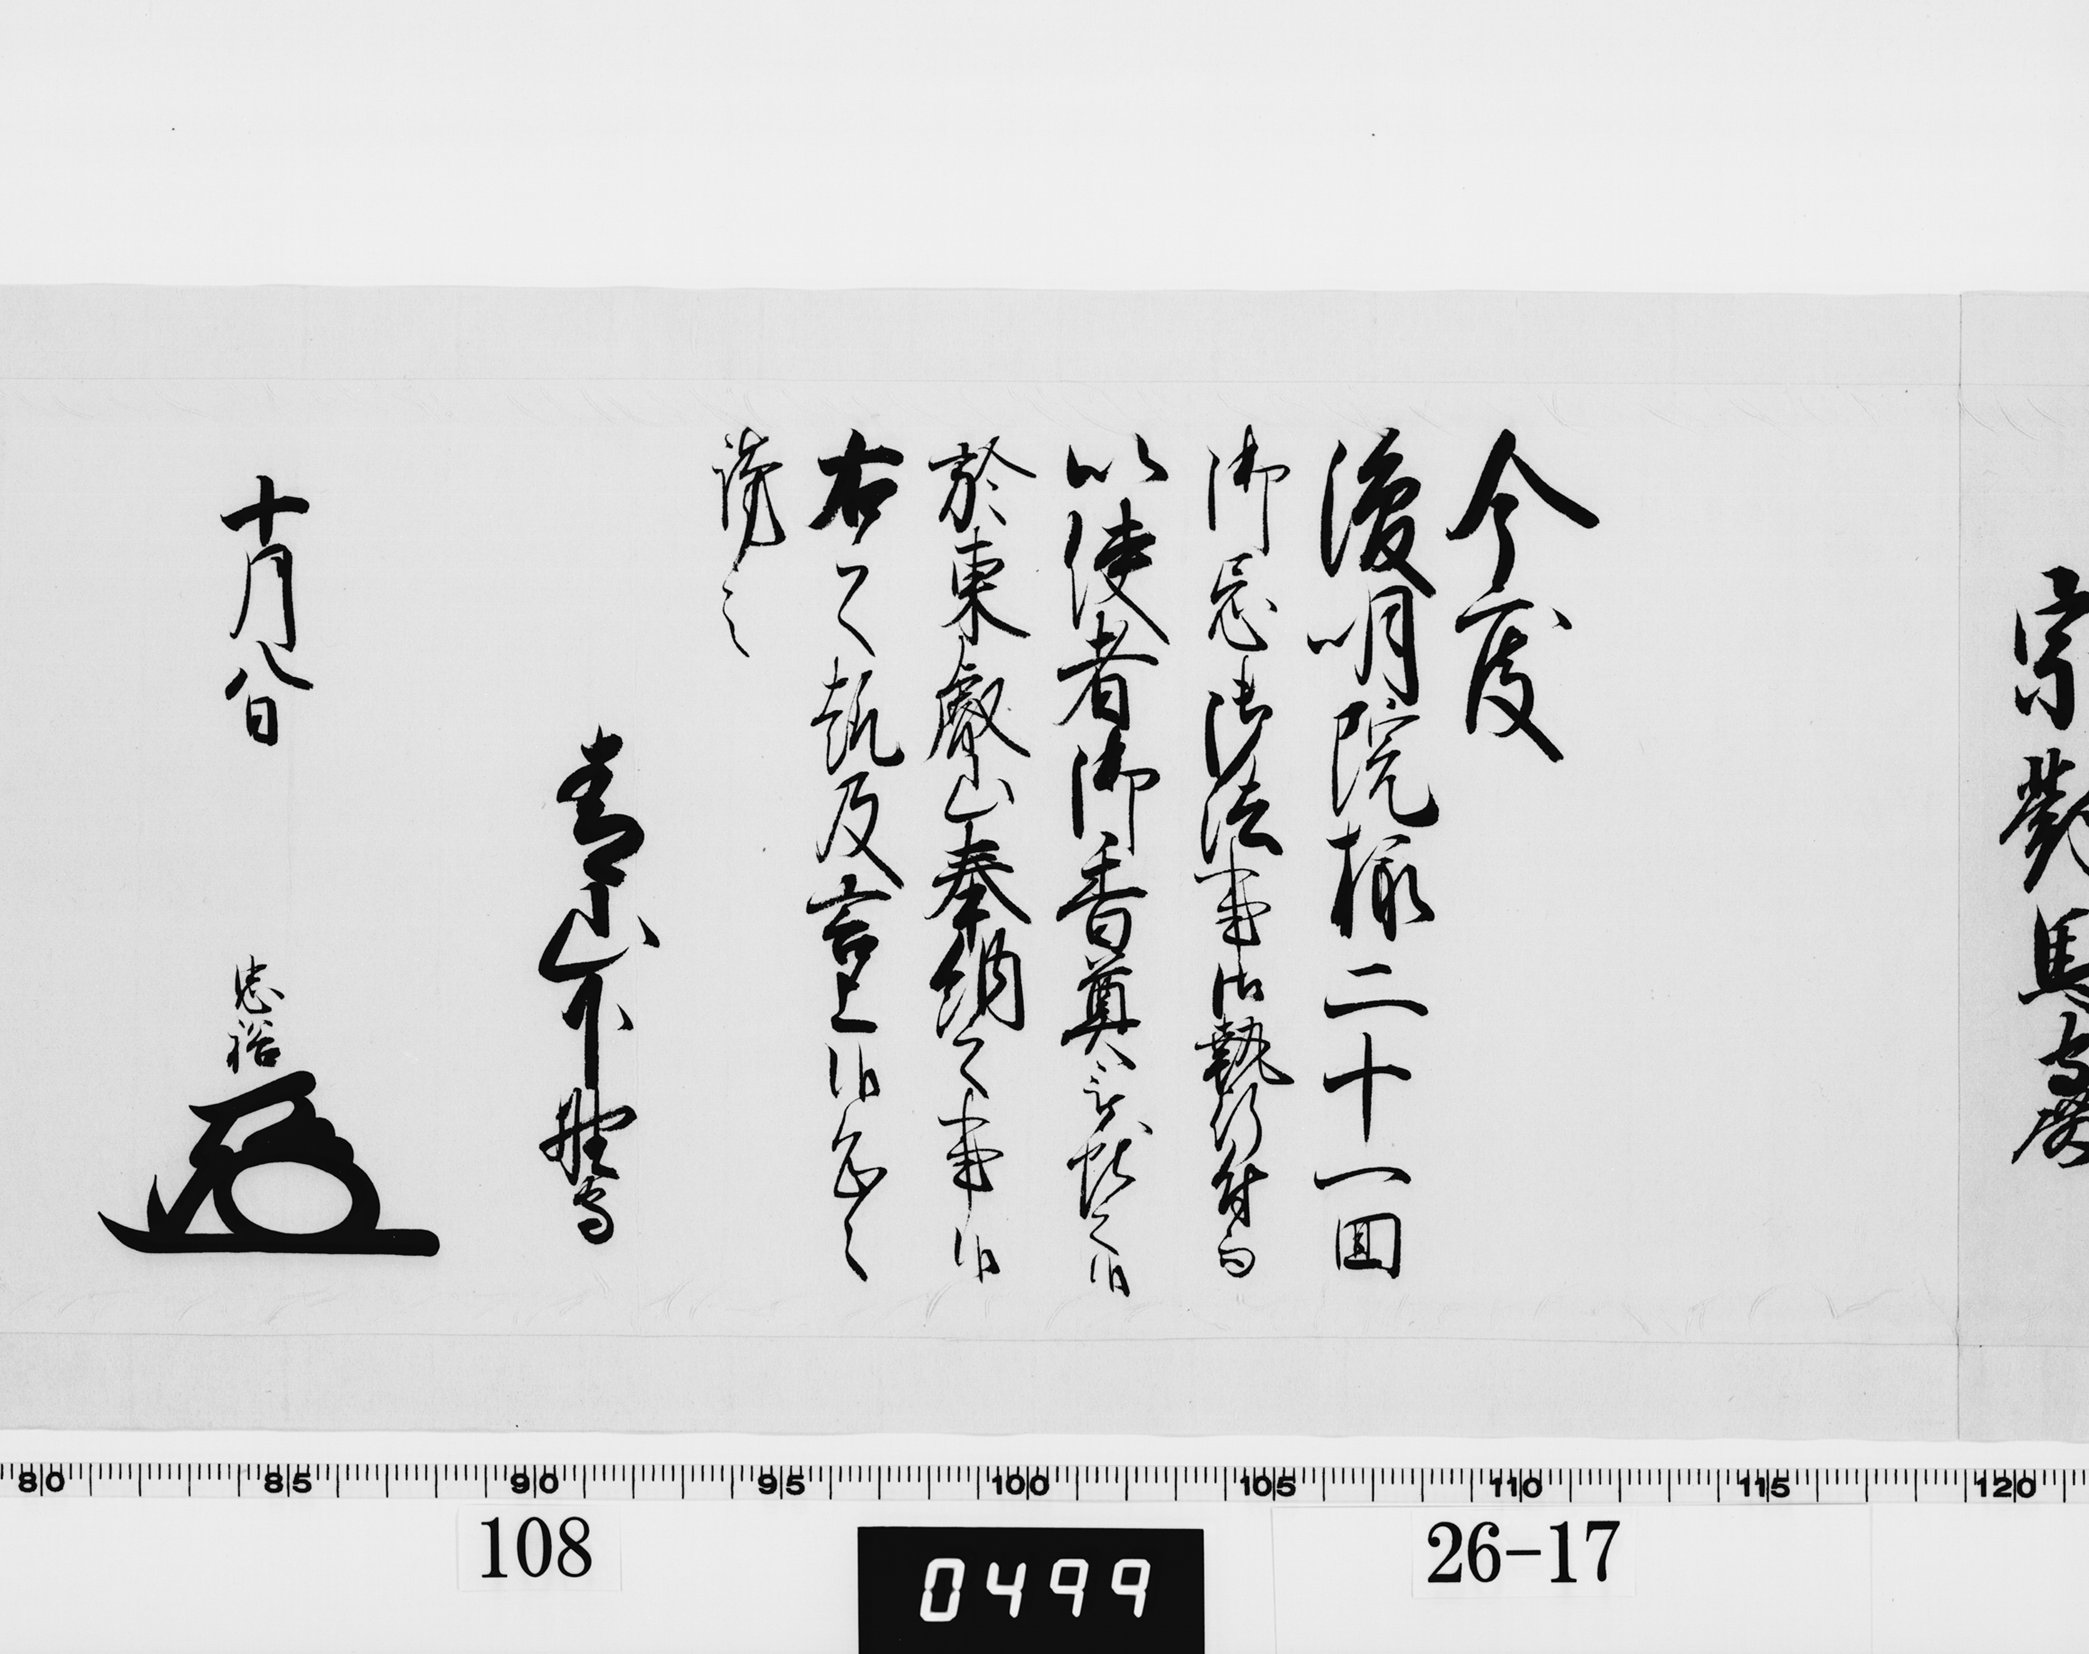 宗對馬守殿
今度
浚明院様二十一回
御忌御法事御執行付而
以使者御香奠被獻之候
於東叡山奉納之事候
右之趣及言上候恐々
謹言
青山下野守
十月八日
忠裕
80 85 90 95 100 105 110 115 120
108
0499
26-17